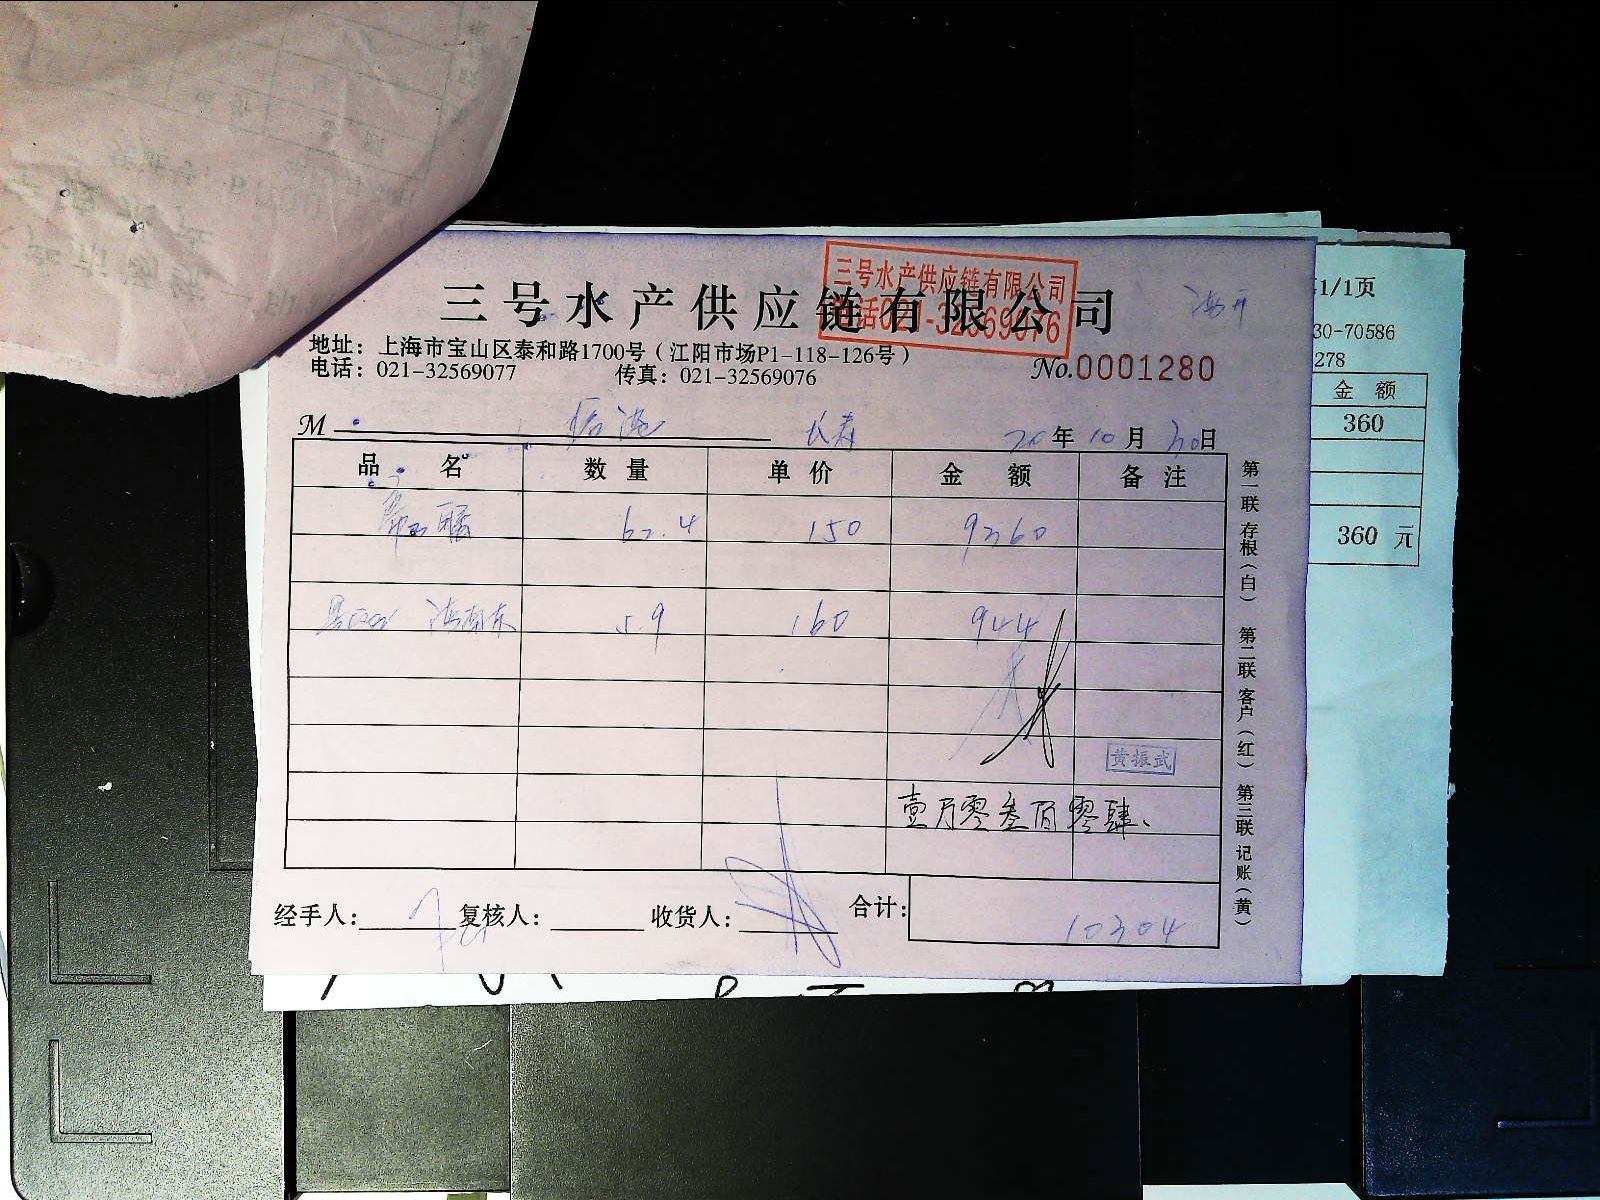 三号水产供应链有限公司
三号水产供应链有限公司
电话021-32569076
地址：上海市宝山区泰和路1700号（江阳市场P1-118-126号）
电话：021-32569077 传真：021-32569076
No.0001280
M 临港 长寿 20年10月30日
品名 数量 单价 金额 备注
62.4 150 9360
5.9 160 944
黄振武
壹万零叁百零肆
经手人： 复核人： 收货人： 合计：10304
第一联 存根（白） 第二联 客户（红） 第三联 记账（黄）
1/1页
30-70586
278
金额
360
360 元